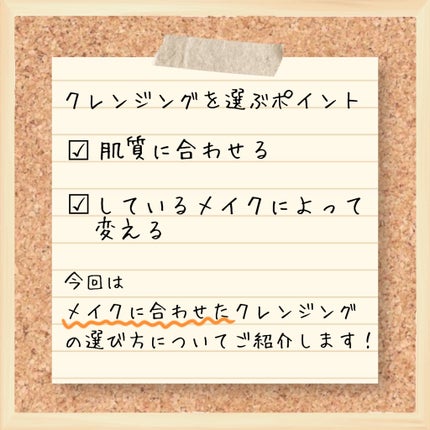 クレンジングを選ぶポイント
☑ 肌質に合わせる
☑ しているメイクによって
変える
今回は
メイクに合わせたクレンジング
の選び方についてご紹介します!